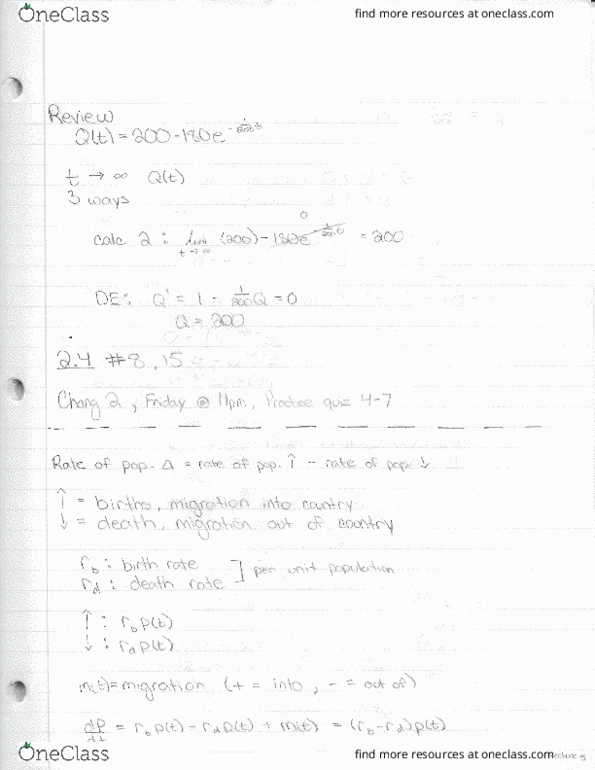 OneClass
find more resources at oneclass.com
Review
Q(t) = 200 - 180e^-1/200 t
t → ∞ Q(t)
3 ways
0
calc 2 : lim t→∞ (200) - 180e^-1/200 t = 200
DE: Q' = 1 - 1/200 Q = 0
Q = 200
2.4 #8, 15
Chang 2, Friday @ 11pm, Practice quiz 4-7
Rate of pop. Δ = rate of pop. ↑ - rate of pop ↓
↑ = births, migration into country
↓ = death, migration out of country
r_b : birth rate
r_d : death rate ] per unit population
↑ : r_b p(t)
↓ : r_d p(t)
m(t) = migration (+ = into, - = out of)
dP/dt = r_b p(t) - r_d p(t) + m(t) = (r_b - r_d) p(t)
OneClass
find more resources at oneclass.com